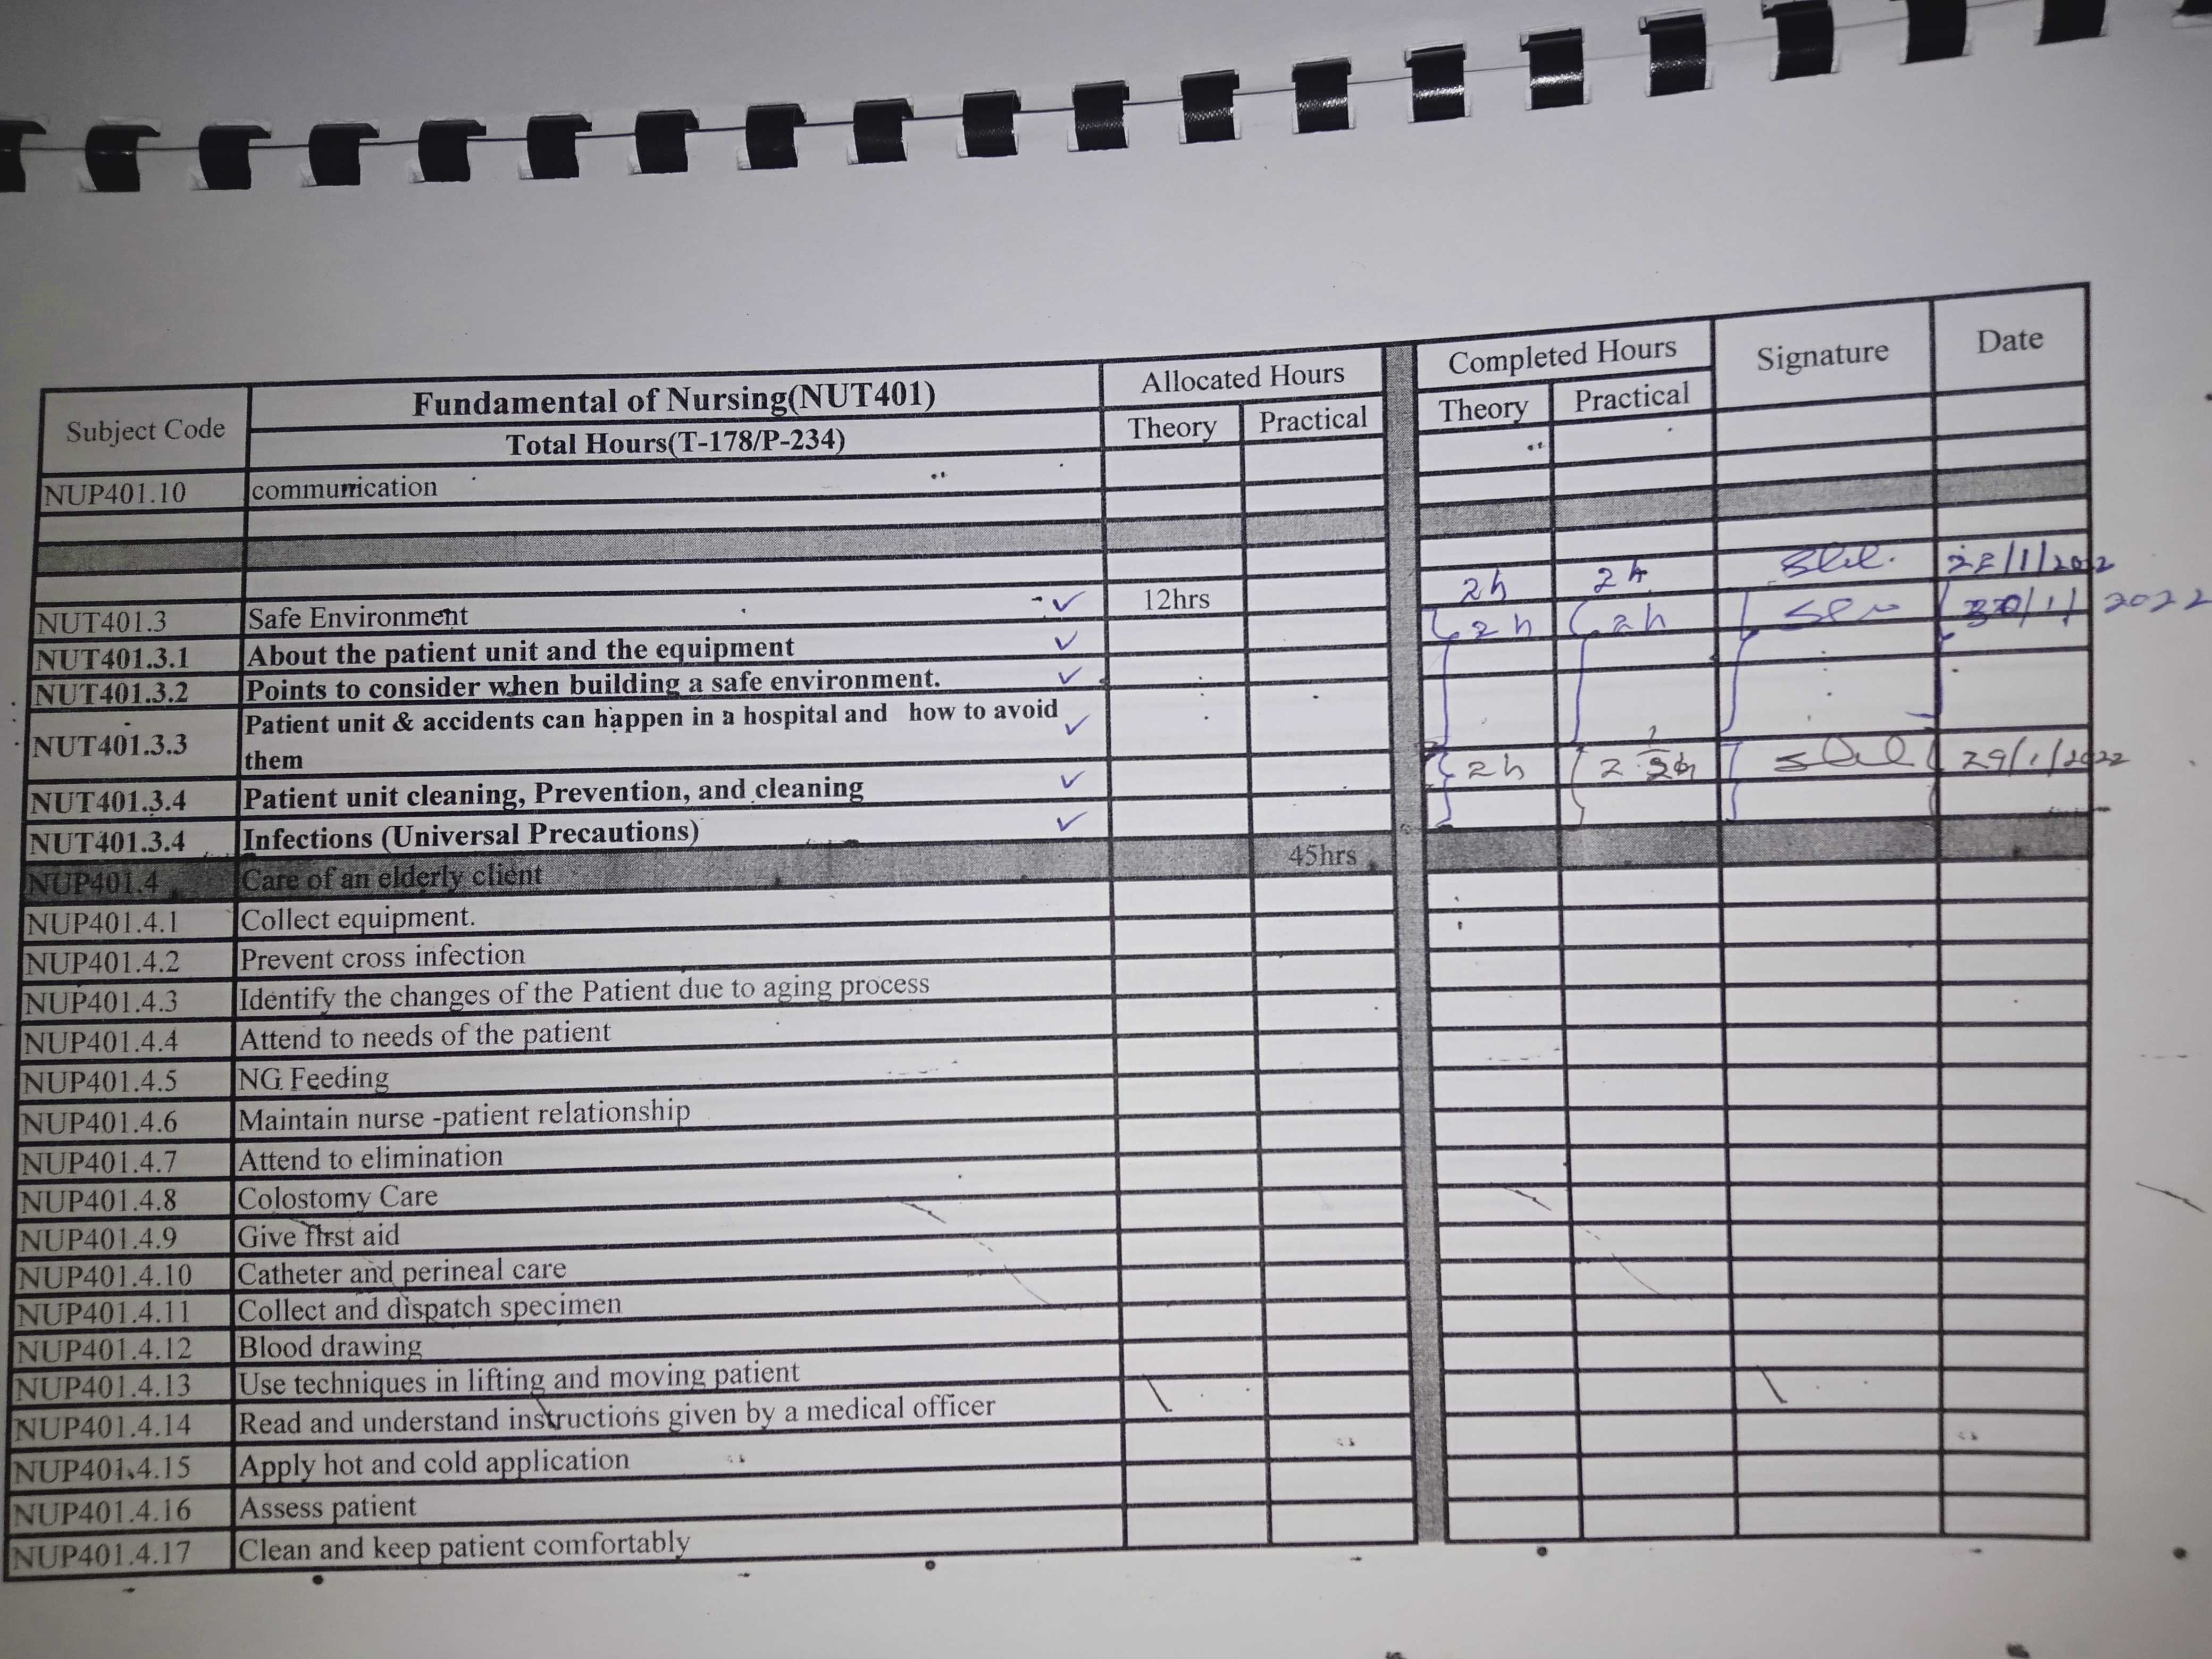 Subject Code Fundamental of Nursing(NUT401) Allocated Hours Completed Hours Signature Date
Total Hours(T-178/P-234) Theory Practical Theory Practical
NUP401.10 communication
NUT401.3 Safe Environment 12hrs 2h 2h
NUT401.3.1 About the patient unit and the equipment 2h 2h 2022
NUT401.3.2 Points to consider when building a safe environment.
NUT401.3.3 Patient unit & accidents can happen in a hospital and how to avoid
them
NUT401.3.4 Patient unit cleaning, Prevention, and cleaning 2h 29/1/2022
NUT401.3.4 Infections (Universal Precautions)
NUP401.4 Care of an elderly client 45hrs
NUP401.4.1 Collect equipment.
NUP401.4.2 Prevent cross infection
NUP401.4.3 Identify the changes of the Patient due to aging process
NUP401.4.4 Attend to needs of the patient
NUP401.4.5 NG Feeding
NUP401.4.6 Maintain nurse -patient relationship
NUP401.4.7 Attend to elimination
NUP401.4.8 Colostomy Care
NUP401.4.9 Give first aid
NUP401.4.10 Catheter and perineal care
NUP401.4.11 Collect and dispatch specimen
NUP401.4.12 Blood drawing
NUP401.4.13 Use techniques in lifting and moving patient
NUP401.4.14 Read and understand instructions given by a medical officer
NUP401.4.15 Apply hot and cold application
NUP401.4.16 Assess patient
NUP401.4.17 Clean and keep patient comfortably